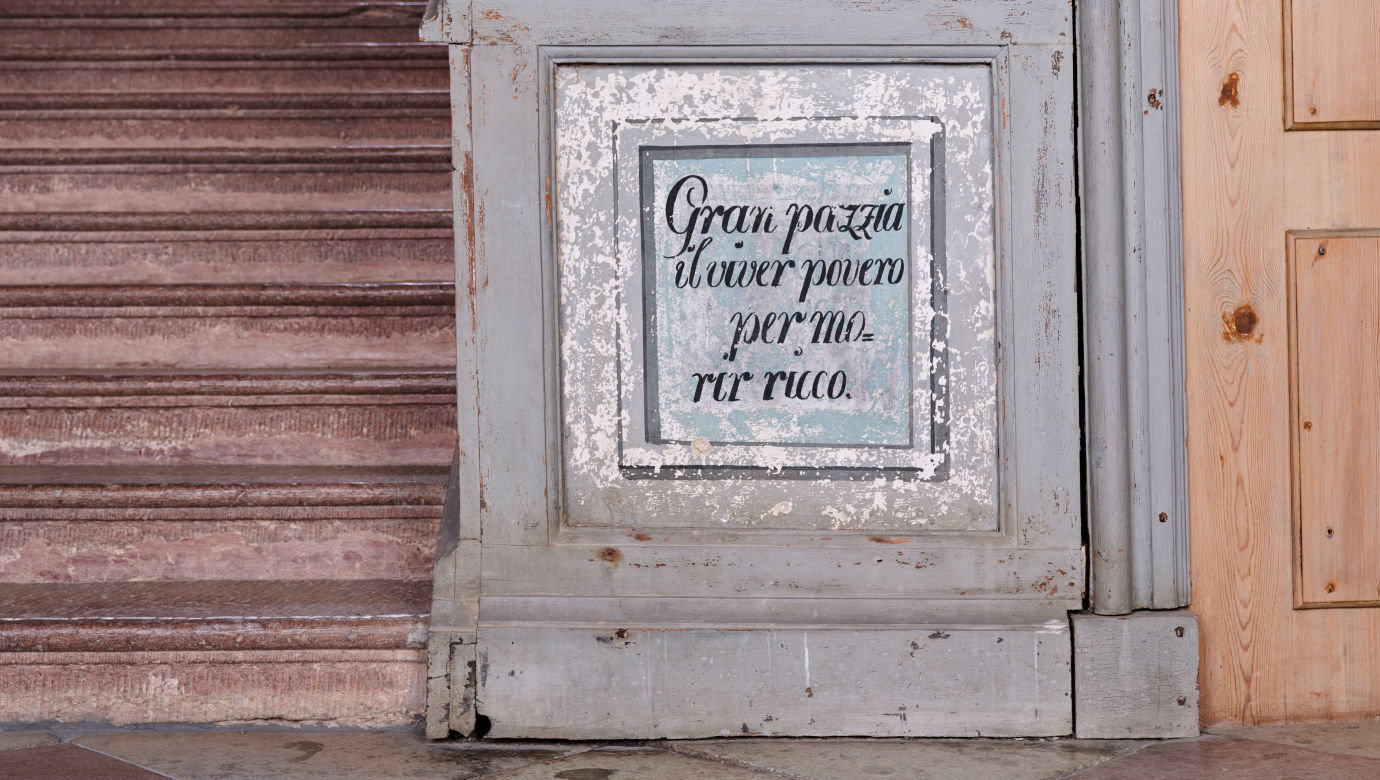 Gran pazzia
il viver povero
per mo=
rir ricco.